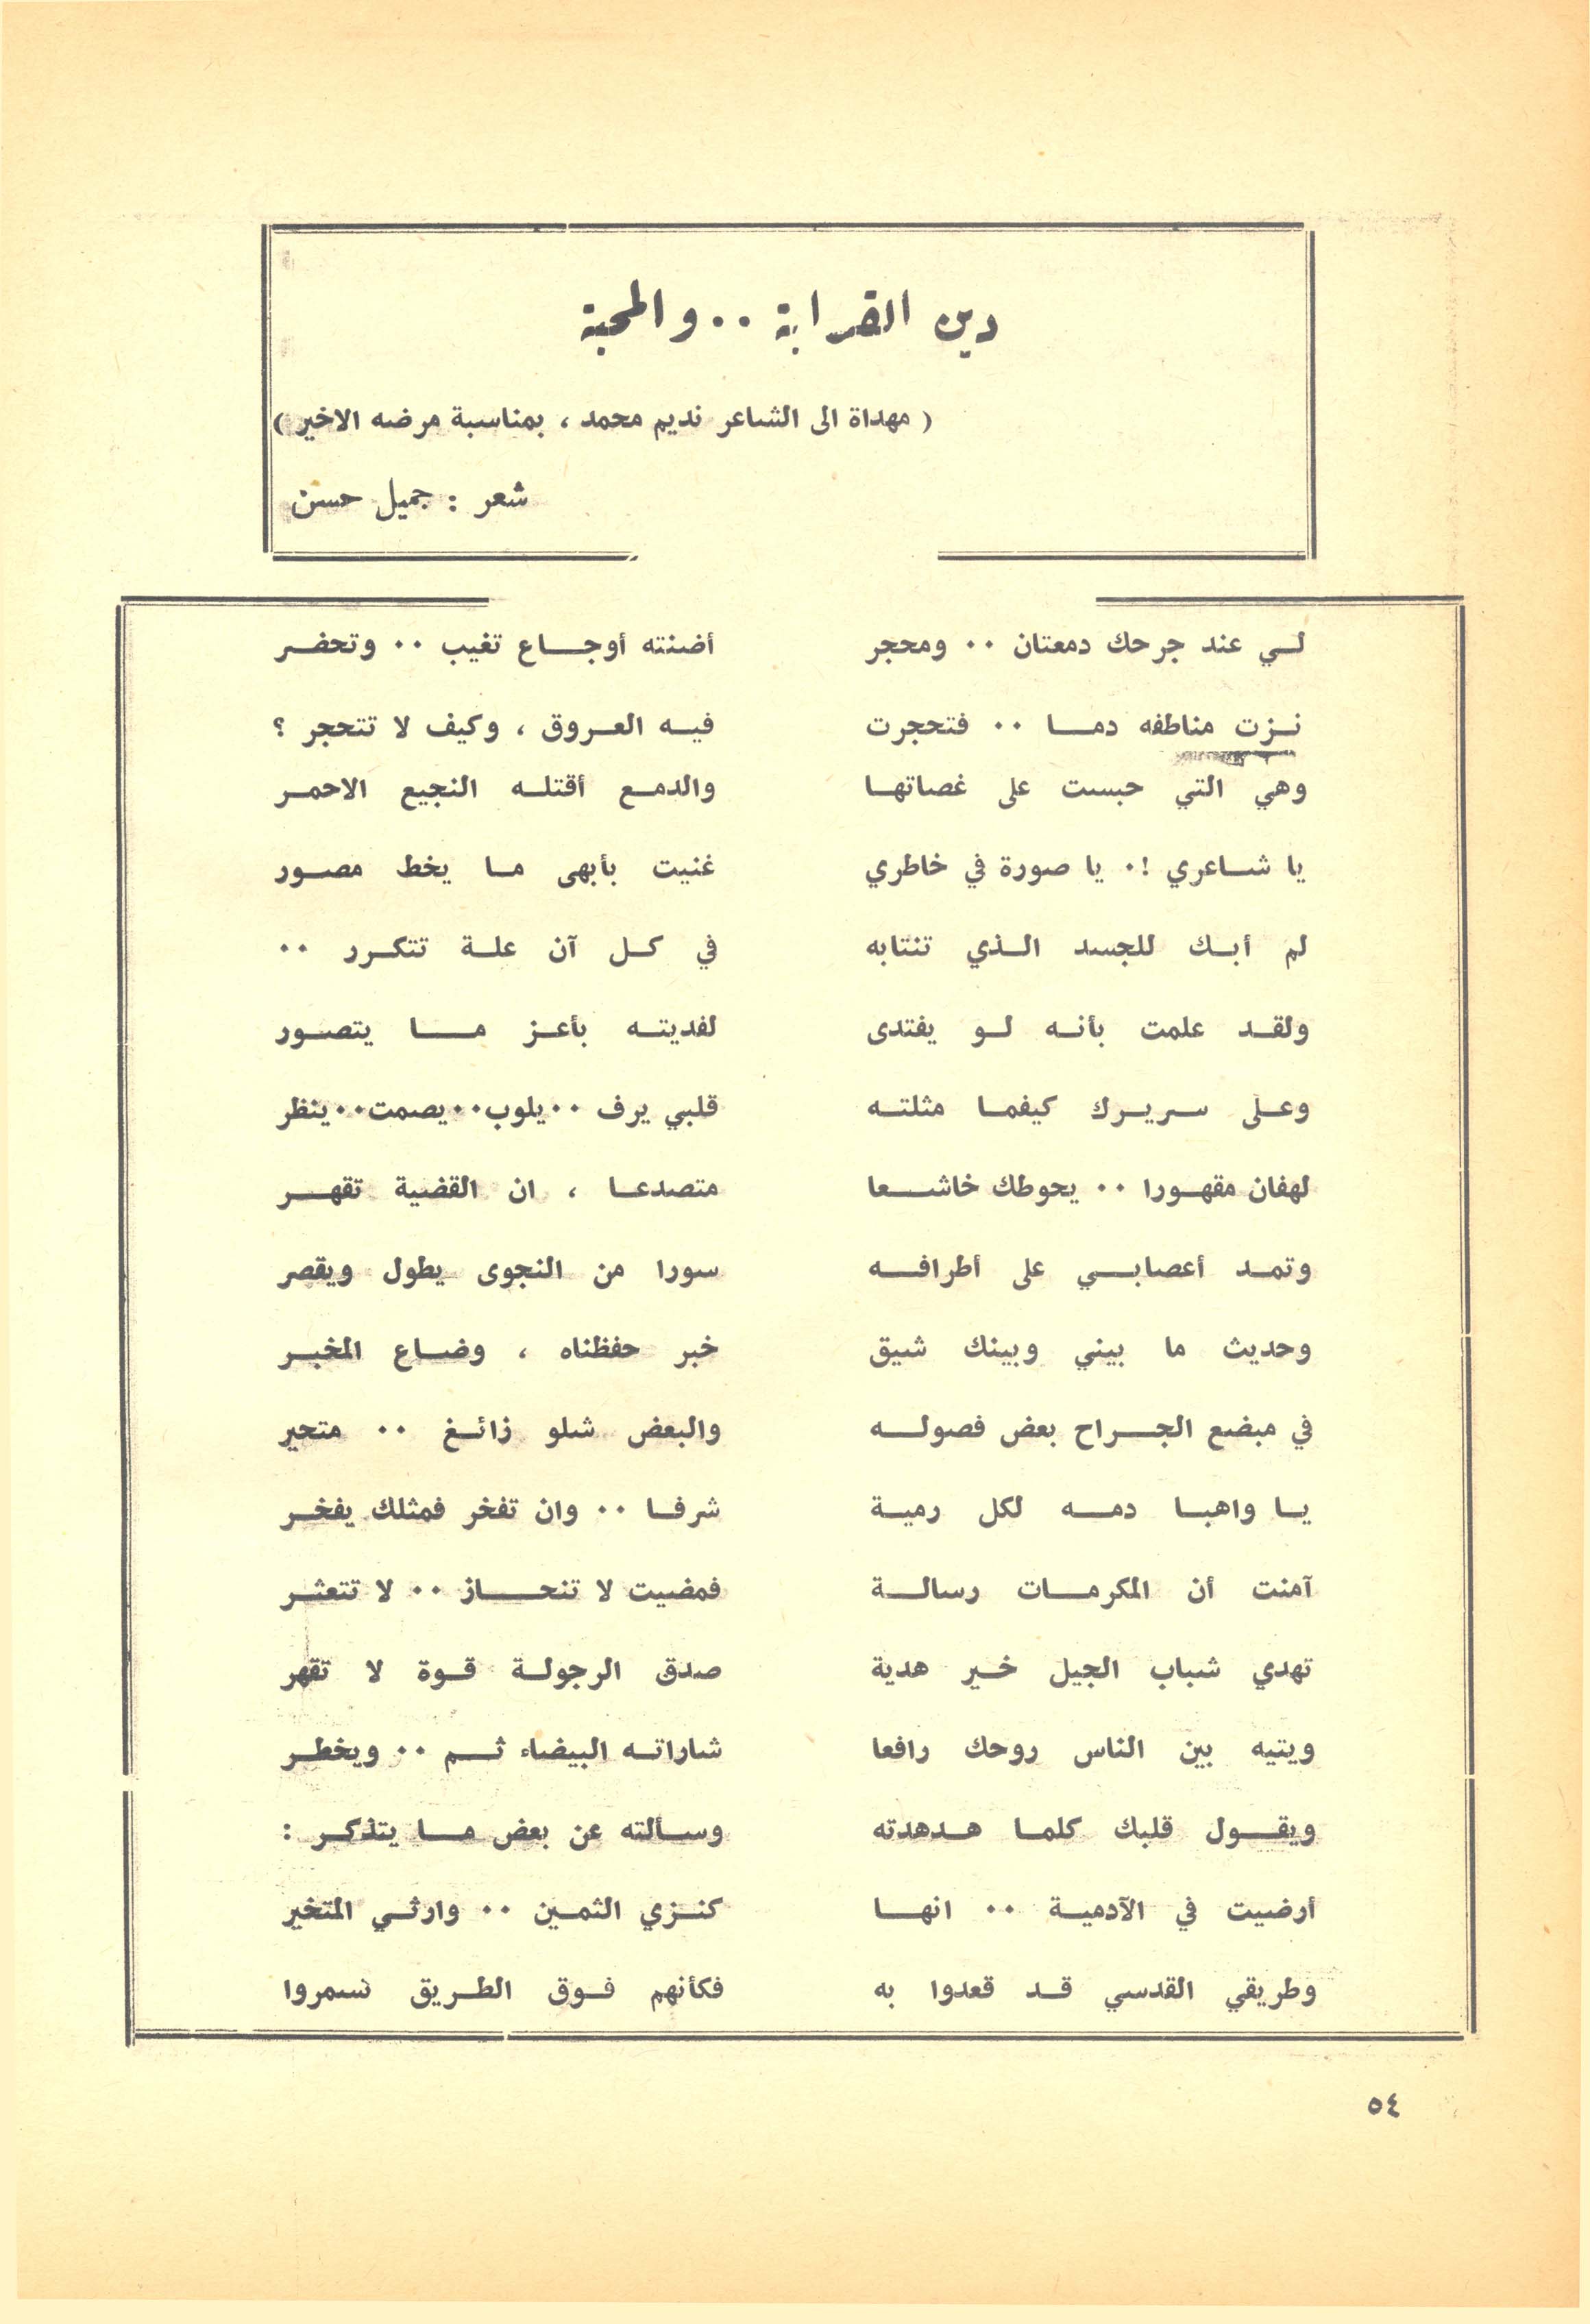 دين القرابة ٠٠ والمحبة
( مهداة الى الشاعر نديم محمد ، بمناسبة مرضه الاخير )
شعر : جميل حسن
لي عند جرحك دمعتان ٠٠ ومحجر أضنته أوجاع تغيب ٠٠ وتحضر
نزت مناطفه دما ٠٠ فتحجرت فيه العروق ، وكيف لا تتحجر ؟
وهي التي حبست على غصاتها والدمع أقتله النجيع الاحمر
يا شاعري !٠ يا صورة في خاطري غنيت بأبهى ما يخط مصور
لم أبك للجسد الذي تنتابه في كل آن علة تتكرر ٠٠
ولقد علمت بأنه لو يفتدى لفديته بأعز ما يتصور
وعلى سريرك كيفما مثلته قلبي يرف ٠٠يلوب٠٠يصمت٠٠ينظر
لهفان مقهورا ٠٠ يحوطك خاشعا متصدعا ، ان القضية تقهر
وتمد أعصابي على أطرافه سورا من النجوى يطول ويقصر
وحديث ما بيني وبينك شيق خبر حفظناه ، وضاع المخبر
في مبضع الجراح بعض فصوله والبعض شلو زائغ ٠٠ متحير
يا واهبا دمه لكل رمية شرفا ٠٠ وان تفخر فمثلك يفخر
آمنت أن المكرمات رسالة فمضيت لا تنحاز ٠٠ لا تتعثر
تهدي شباب الجيل خير هدية صدق الرجولة قوة لا تقهر
ويتيه بين الناس روحك رافعا شاراته البيضاء ثم ٠٠ ويخطر
ويقول قلبك كلما هدهدته وسألته عن بعض ما يتذكر :
أرضيت في الآدمية ٠٠ انها كنزي الثمين ٠٠ وارثي المتخير
وطريقي القدسي قد قعدوا به فكأنهم فوق الطريق تسمروا
٥٤